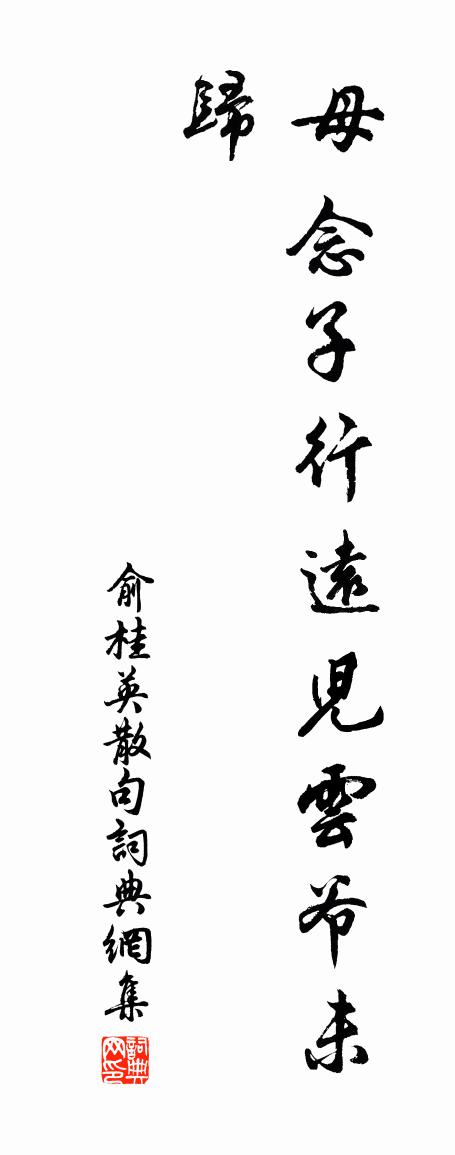 母念子行遠兒雲爷未
歸
俞桂英散句詞典網集
詞典网印